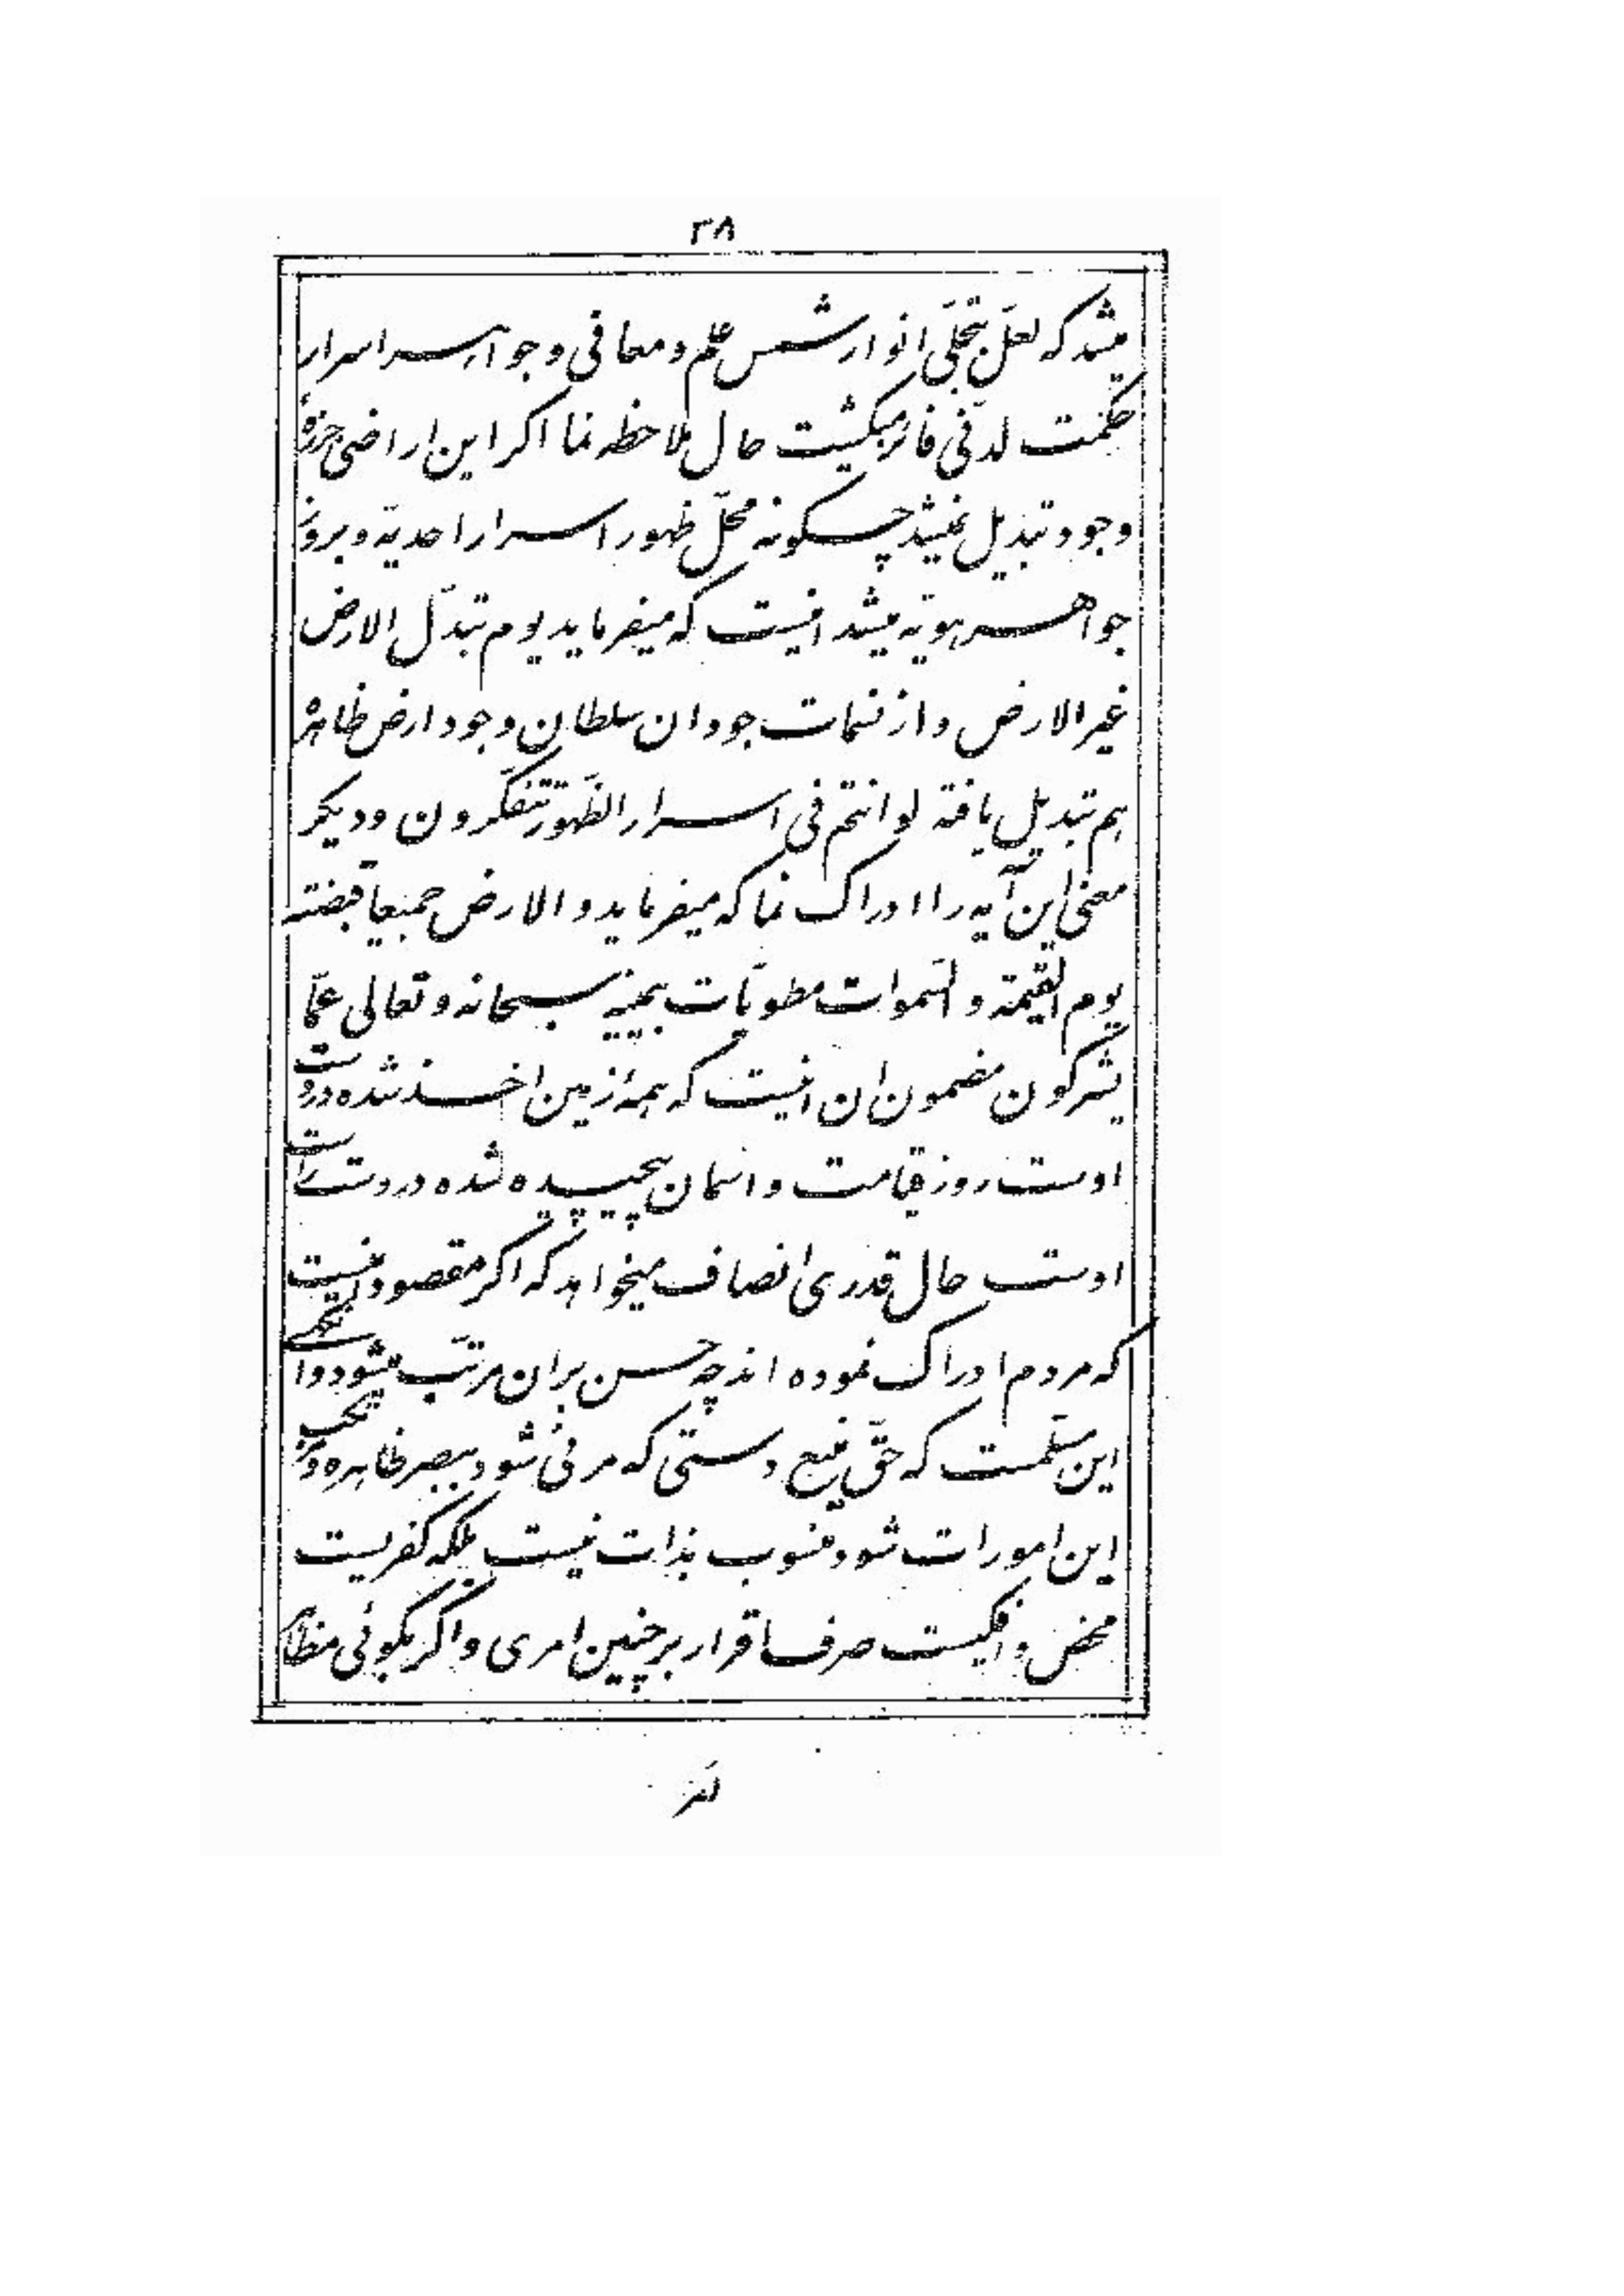 ۳۸
میشد که لعلّ بتجلّی انوار شمس علم و معانی و جواهر اسرار
حکمت لدنّی فائز میگشت حال ملاحظه نما اگر این اراضی جرزهٔ
وجود تبدیل نمیشد چگونه محلّ ظهور اسرار احدیّه و بروز
جواهر هویّه میشد اینست که میفرماید یوم تبدّل الارض
غیر الارض و از نسمات جود ان سلطان وجود ارض ظاهره
هم تبدیل یافته لو انتم فی اسرار الظّهور تتفکّرون و دیگر
معنی این آیه را ادراک نما که میفرماید و الارض جمیعاً قبضته
یوم القیمة و السّموات مطویّات بیمینه سبحانه و تعالی عمّا
یشرکون مضمون ان اینست که همهٔ زمین اخذ شده در دست
اوست روز قیامت و اسمان پیچیده شده در دست راست
اوست حال قدری انصاف میخواهد که اگر مقصود اینست
که مردم ادراک نموده اند چه حسن بران مرتّب میشود وانگهی
این مسلّمست که حقّ منیع دستی که مرئی شود ببصر ظاهر و مرتکب
این امورات شود منسوب بذات نیست بلکه کفریست
محض و افکیست صرف اقرار بر چنین امری و اگر بگوئی مظاهر